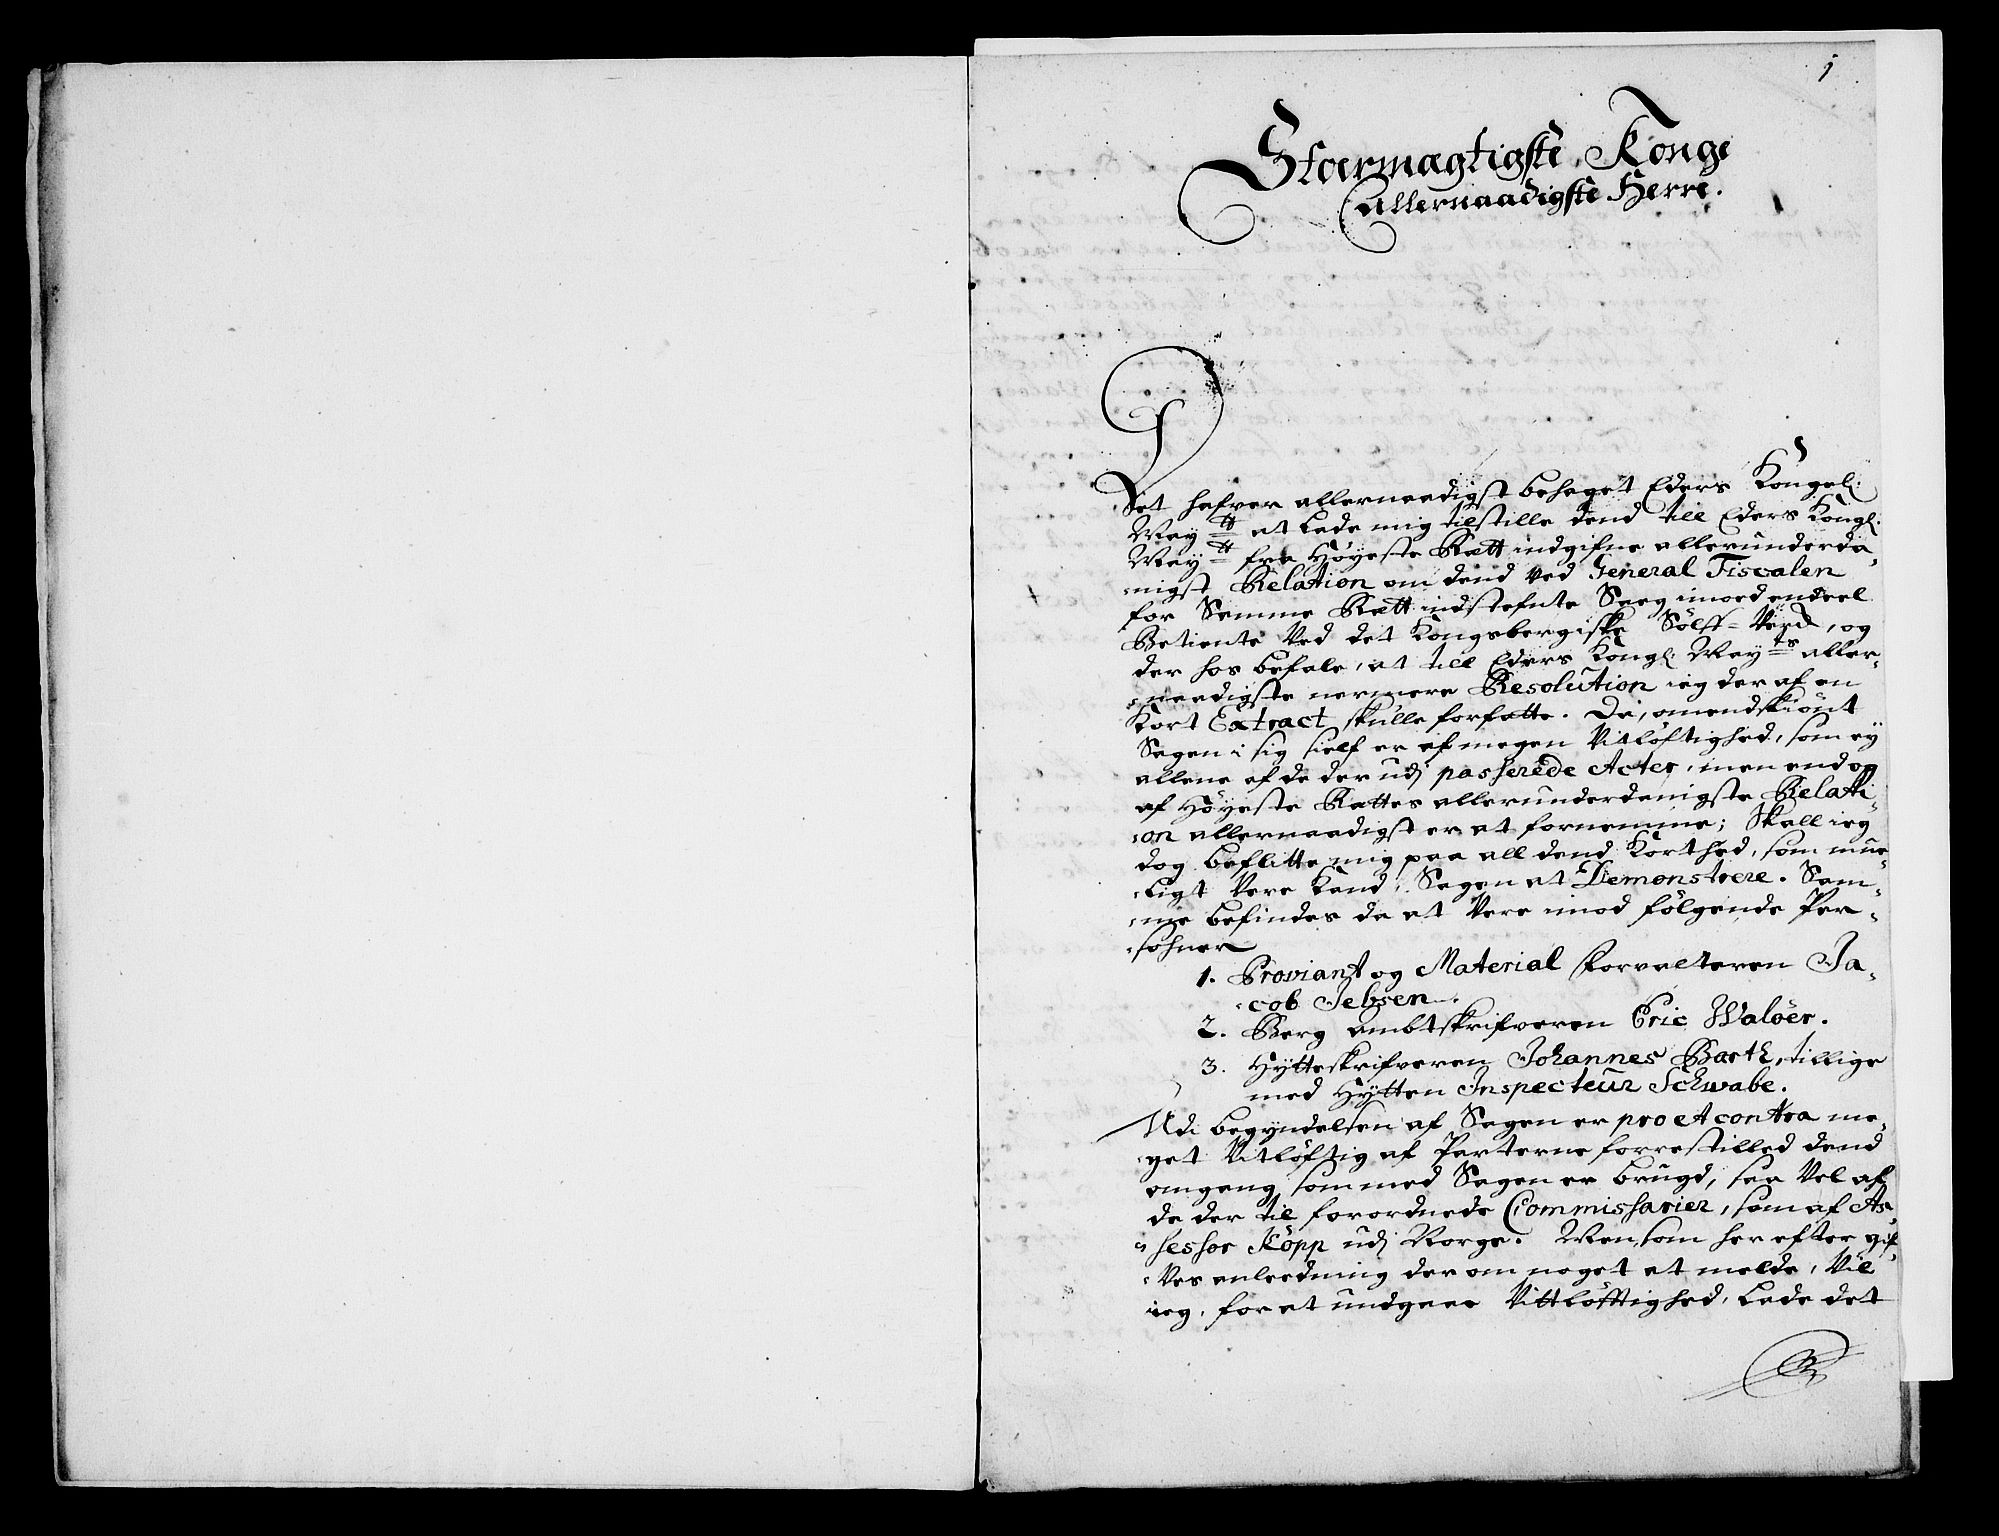 1
Stoermægtigste Konge
Allernaadigste Herre.
Det hafver allernaadigst behaget Eders Kongel:
May.tt at Lade mig tilstille dend till Eders Kongl.
May.tt fra Høyeste Rætt indgifne allerunderda-
nigst Relation om dend ved General Fiscalen
for Samme Rætt indstefnte Saeg imod endeel
Betiente Ved det Kongsbergiske Sölff-Verd, og
der hos befale, at till Eders Kongl: May.ts aller-
naadigste nermere Resolution ieg der af en
Kort Extract skulle forfatte. Da, omendskiönt
Sagen i sig sielf er af megen Vitløftighed, som ey
allene af de der udj passerede Acter, men end og
af Høyeste Rættes allerunderdanigste Relati-
on allernaadigst er at fornemme; Skall ieg
dog beflitte mig paa all dend Korthed, som mue-
ligt Vere Kand, Sagen at Demonstrere. Sam-
me befindes da at Vere imod fölgende Per-
sohner
1. Proviant og Material Forvalteren Ja-
cob Jebsen.
2. Berg ambtskrifveren Eric Waløer.
3. Hytteskrifveren Johannes Barth, tillige
med Hytten Inspecteur Schwabe.
Udi begyndelsen af Sagen er pro et contra me-
get Vitløftig af Parterne forrestilled dend
omgang som med Sagen er brugd, saa Vel af
de der til forordnede Commissarier, som af As-
sessor Köpp udj Norge. Men som her efter gif-
ves anleedning der om noget at melde, Vil
ieg, for at undgaae Vittløfftighed, Lade det